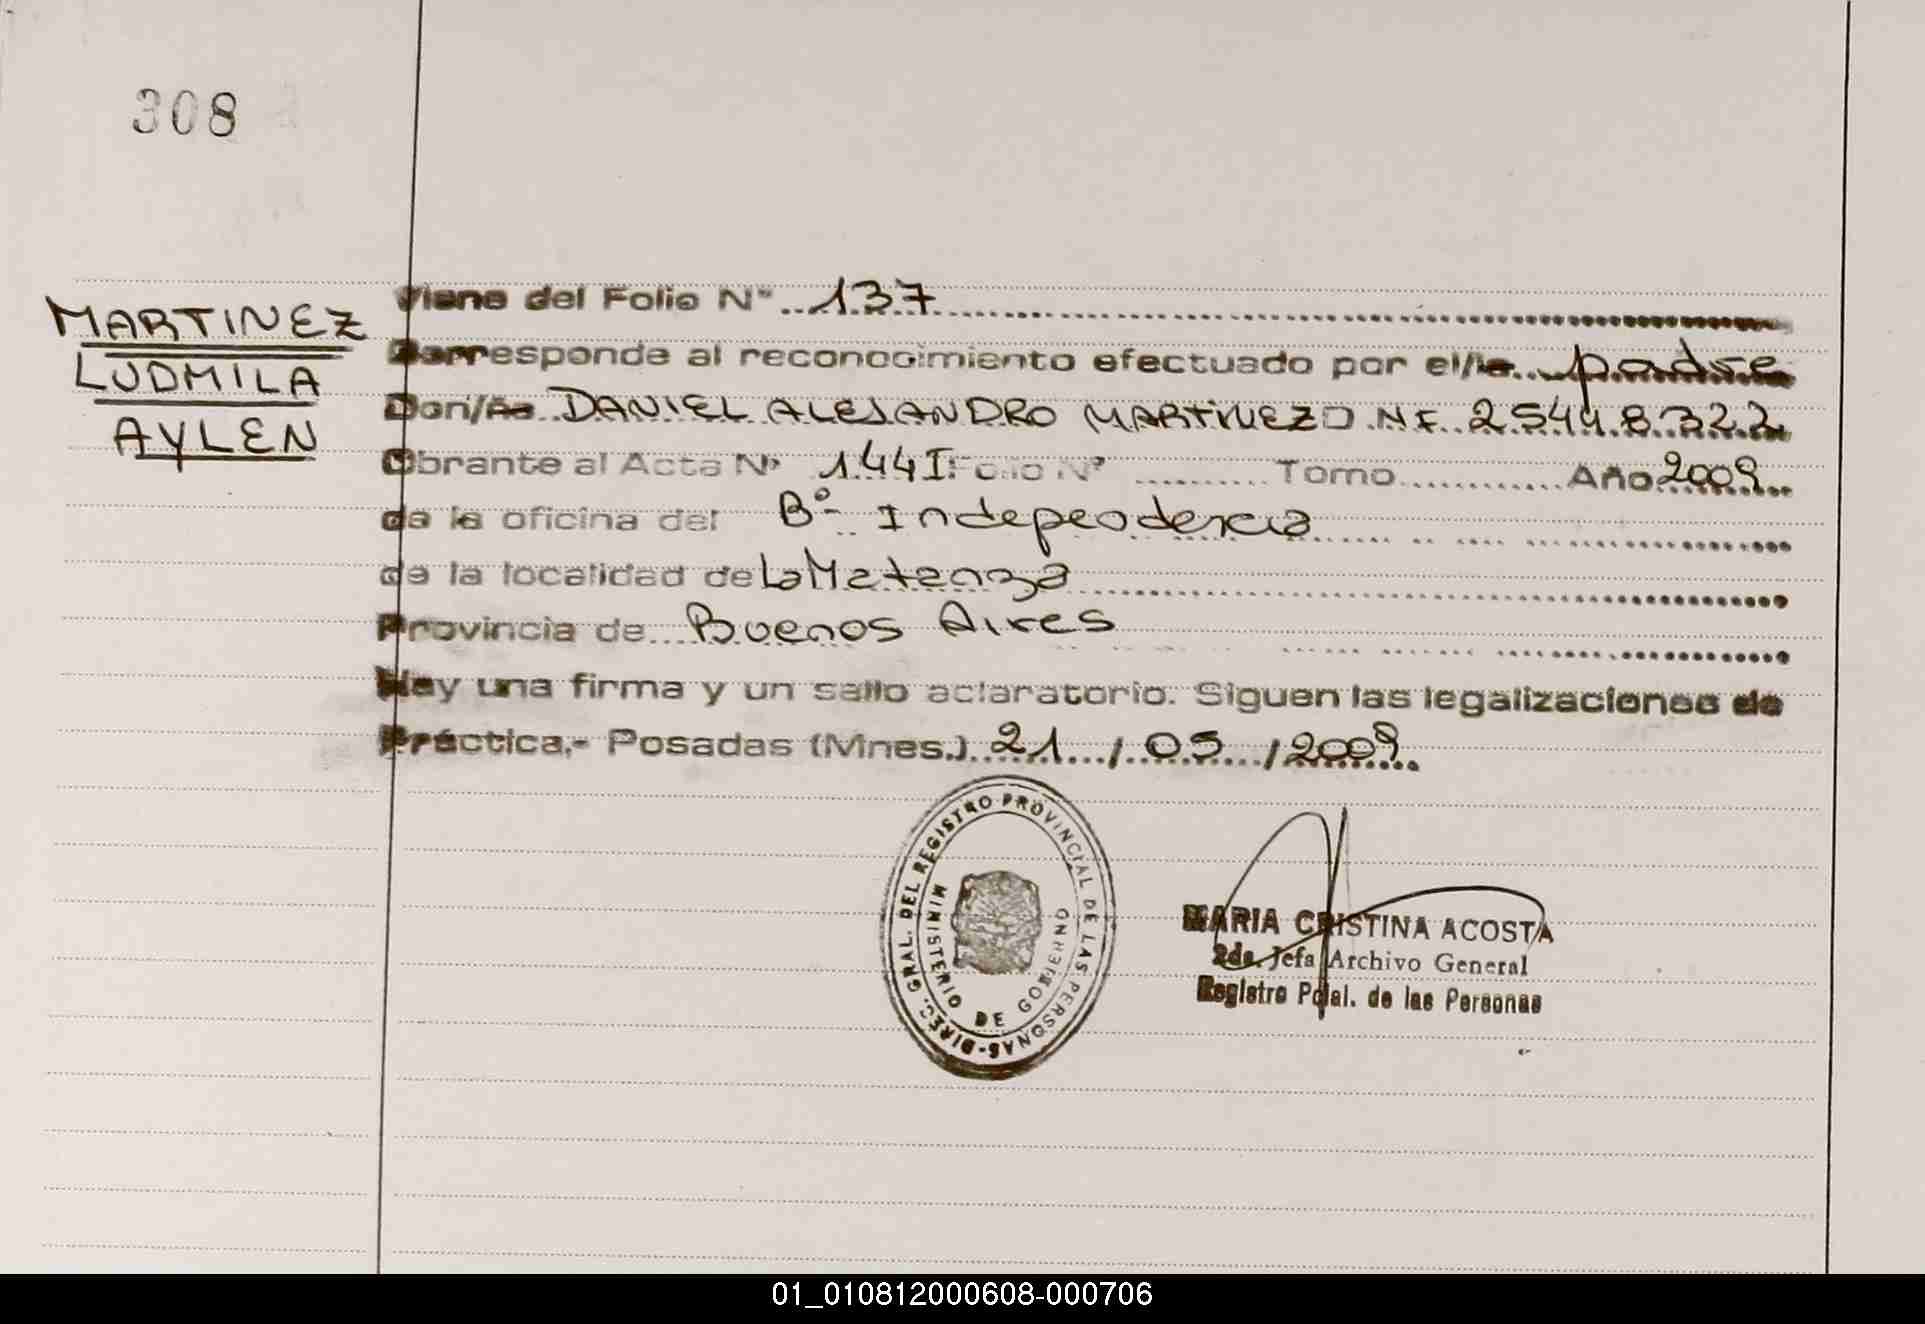 308
MARTINEZ
LUDMILA
AYLEN
Viene del Folio Nº 137
Corresponde al reconocimiento efectuado por el/la padre
Don/ña DANIEL ALEJANDRO MARTINEZ D.N.I. 25.448.322
Obrante al Acta Nº 144I Folio Nº Tomo Año 2009
de la oficina del Bº Independencia
de la localidad de La Matanza
Provincia de Buenos Aires
Hay una firma y un sello aclaratorio. Siguen las legalizaciones de
Práctica.- Posadas (Mnes.) 21 / 05 / 2009
DIREC. GRAL. DEL REGISTRO PROVINCIAL DE LAS PERSONAS
MINISTERIO DE GOBIERNO
MARIA CRISTINA ACOSTA
2da. Jefa Archivo General
Registro Pcial. de las Personas
01_010812000608-000706